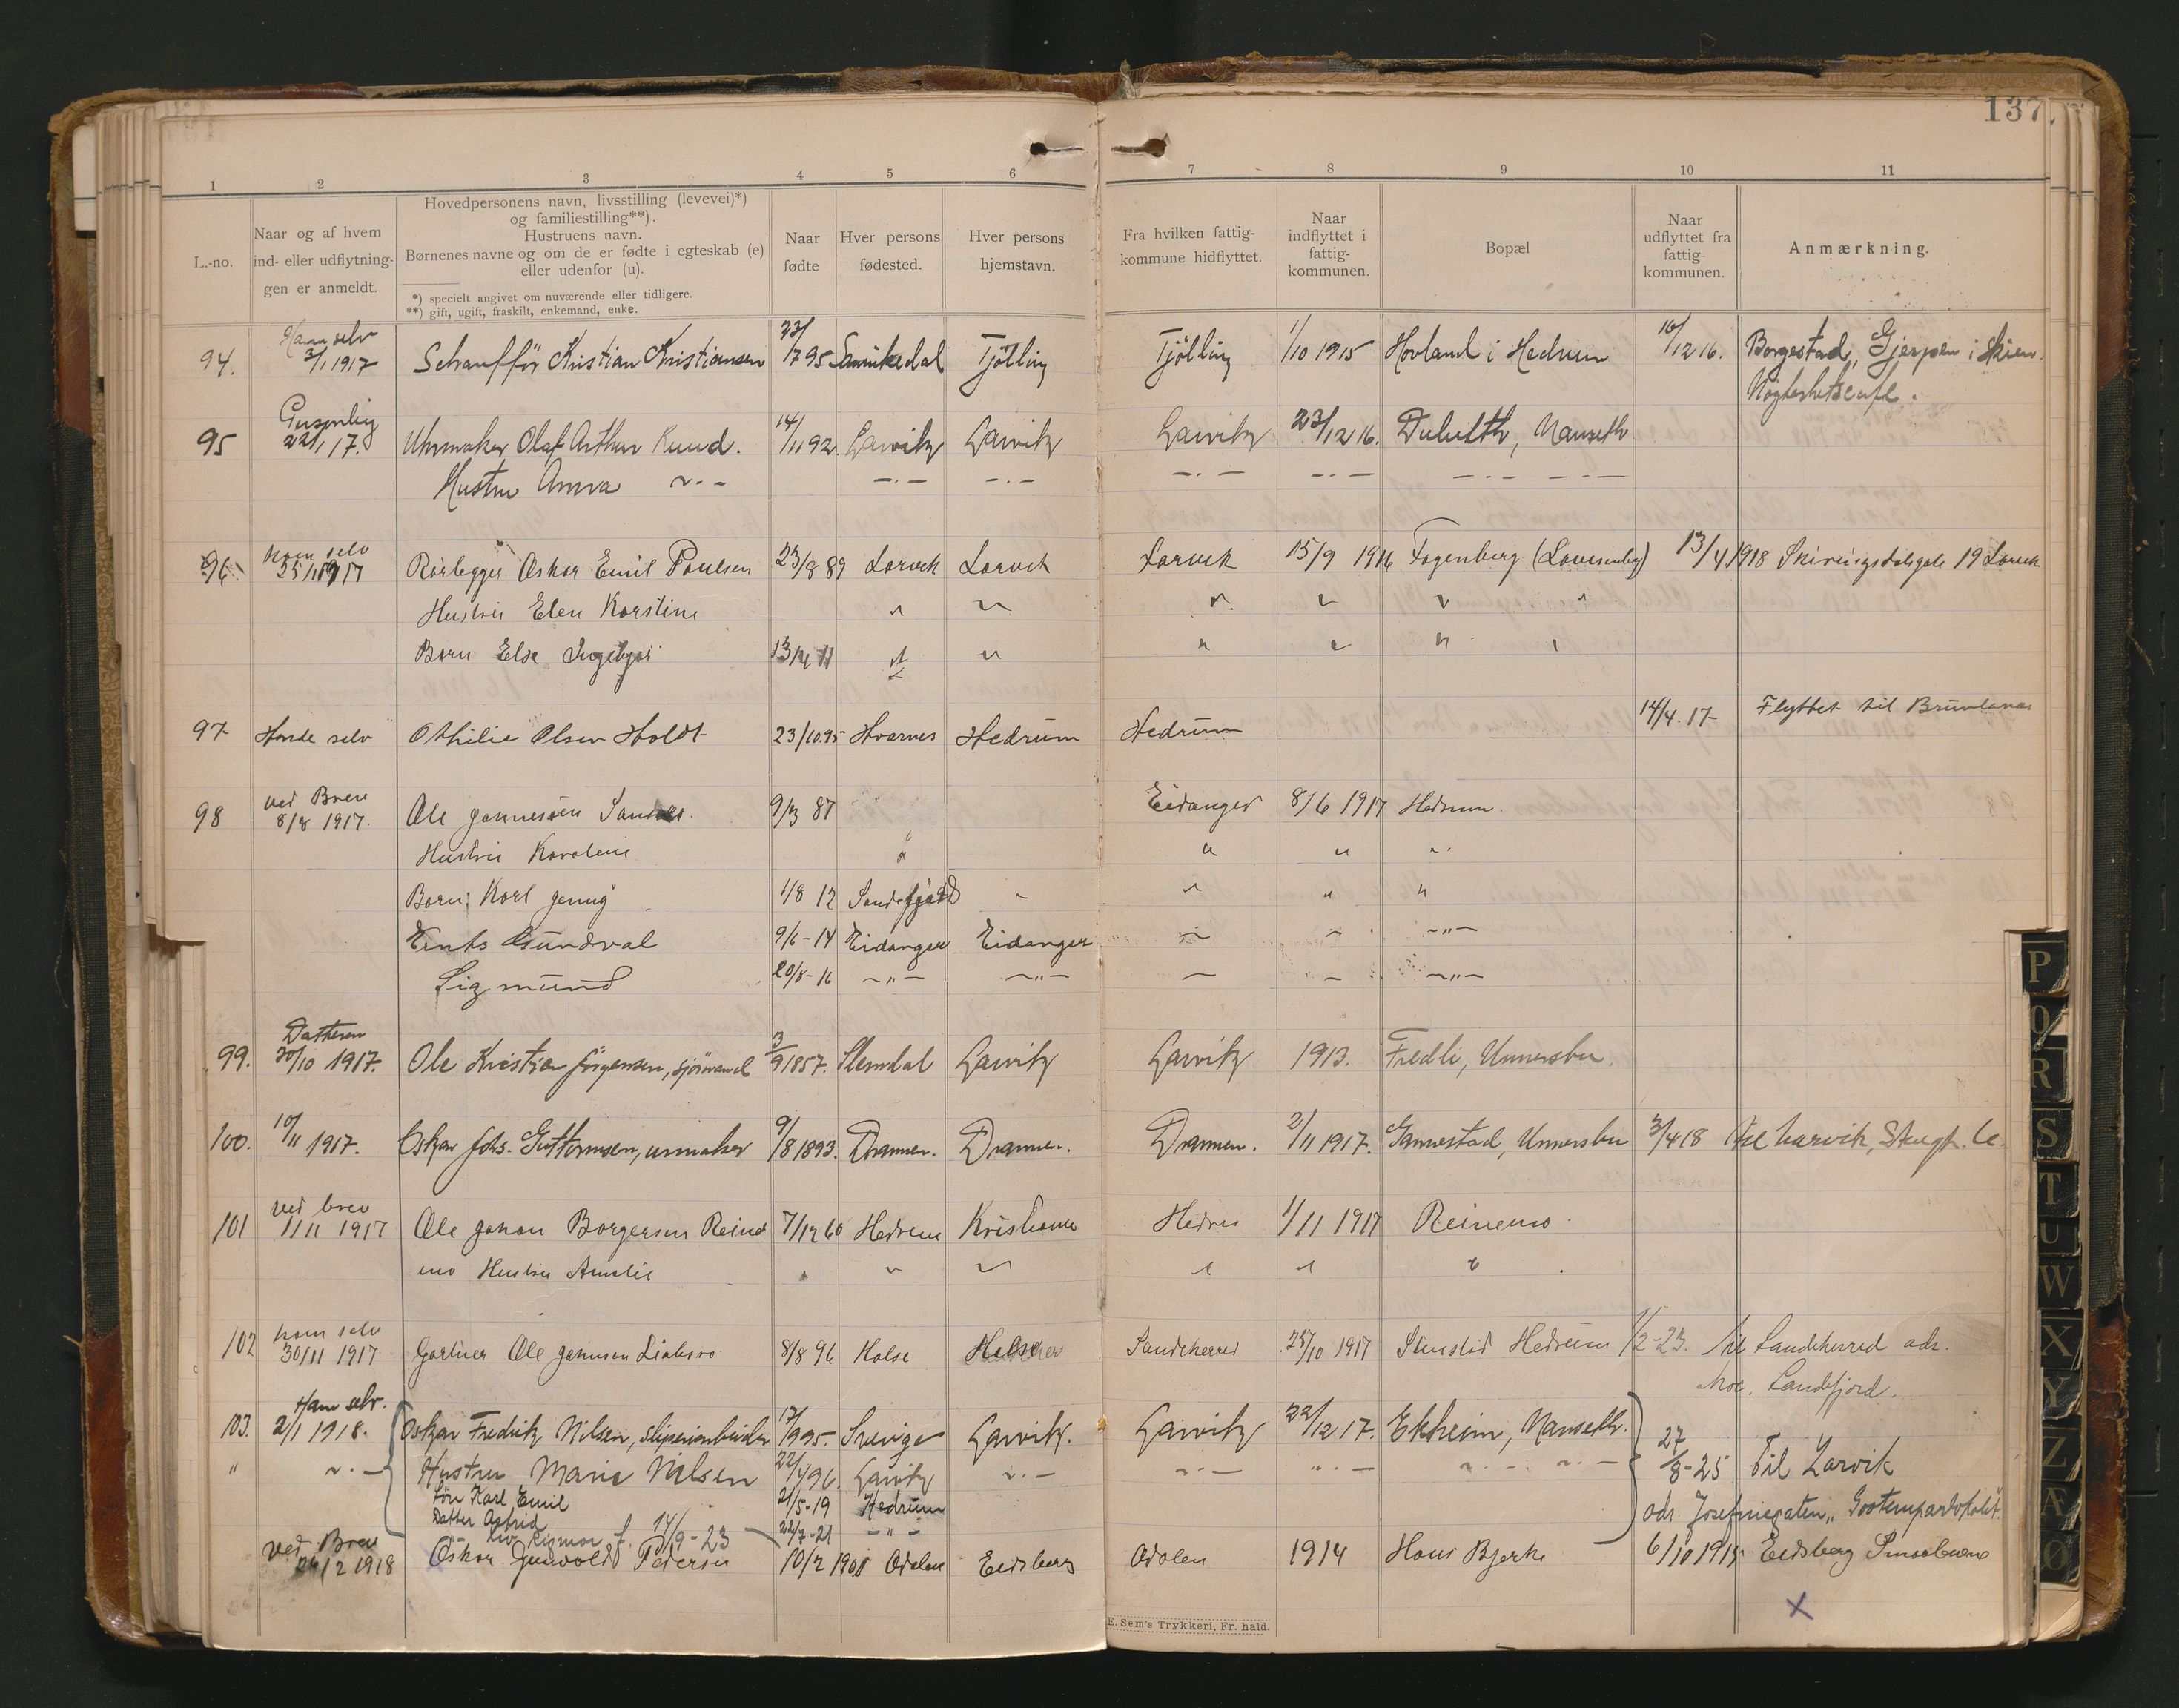 137.
1 2 3 4 5 6 7 8 9 10 11
L.-no.
Naar og af hvem
ind- eller udflytnin-
gen er anmeldt.
Hovedpersonens navn, livsstilling (levevei)*)
og familiestilling**).
Hustruens navn.
Børnenes navne og om de er fødte i egteskab (e)
eller udenfor (u).
*) specielt angivet om nuværende eller tidligere.
**) gift, ugift, fraskilt, enkemand, enke.
Naar
fødte
Hver persons
fødested.
Hver persons
hjemstavn.
Fra hvilken fattig-
kommune hidflyttet.
Naar
indflyttet i
fattig-
kommunen.
Bopæl
Naar
udflyttet fra
fattig-
kommunen.
Anmærkning.
Ham selv
94. 3/1 1917 Schauffør Kristian Kristiansen 23/1795 Tjølling Tjølling 1/10 1915 Hovland i Hedrum 16/12 16. Borgestad, Gjerpen i Skien.
95 22/1 17. Uhrmaker Olaf Arthur Ruud. 14/11 92. Larvik Larvik Larvik 23/12 16. Nanseth
Hustru Anna ~·– –·– –·– –·– –·– –·– –·–
ham selv
96 25/1 1917 Rørlegger Oskar Emil Poulsen 23/8 89 Larvik Larvik Larvik 15/9 1916 Fagenberg 13/4 1918 Skiringsdalsgate 19 Larvik
Hustru Elen Karstine " " " " " "
Barn Else Ingebjør 13/4 11 " " " " " "
97 Hende selv Othilie Olsen Holdt 23/10.95 Hvarnes Hedrum Hedrum 14/4.17 Flyttet til Brunlanes
ved Brev
98 8/8 1917. Ole 9/3 87 Eidanger 8/6 1917 Hedrum.
Hustru Karoline " " " "
Barn: Karl Jenny 1/8 12 Sandefjord " " " "
Gundval 9/6-14 Eidanger Eidanger – – –"–
Sigmund 20/8-16 –"– –"– – – –"–
Datteren
99. 30/10 1917. Ole Kristian Jörgensen, sjömand 3/9 1857. Slemdal Larvik Larvik 1913. Fredli, Unnersbu.
100. 10/11 1917. Oskar Johs. Guttormsen, urmaker 9/8 1893. Drammen. Drammen. Drammen. 2/11 1917. Gannestad, Unnersbu 3/4 18 til Larvik,
ved brev
101 11/11 1917 Ole Johan Borgersen Reine 7/12 60 Hedrum Kristiania 1/11 1917 Reinemo
mo Hustru Amalie " " " " " "
ham selv
102 30/11 1917 Gartner Ole 8/8 96 Halse Halse Sandeherred 25/10 1917 Hedrum 1/2-23. til Sandeherred adr.
Moe. Sandefjord.
Ham selv.
103. 2/1 1918. Oskar Fredrik Nilsen, sliperiarbeider 17/9 95. Sverige Larvik. Larvik 22/12 17. Ekheim, Nanseth. 27/8-25 Til Larvik
" ~·– Hustru Marie Nilsen 22/4 96. Larvik ~·– ~·– "·– ~·– ~·–
Søn Karl Emil 21/5-19 Hedrum adr. Josefinegaten,
Datter Astrid 22/7-21 –"–
Liv Rigmor f. 14/9-23
ved Brev
26/2 1918 Oskar Gunvald Pedersen 10/2 1901 Adalen Eidsberg Adalen 1914 Hans Bjerke 6/10 1915 Eidsberg
x
E. Sem's Trykkeri, Fr. hald.
P
Q
R
S
T
U
W
X
Y
Z
Æ
Ø